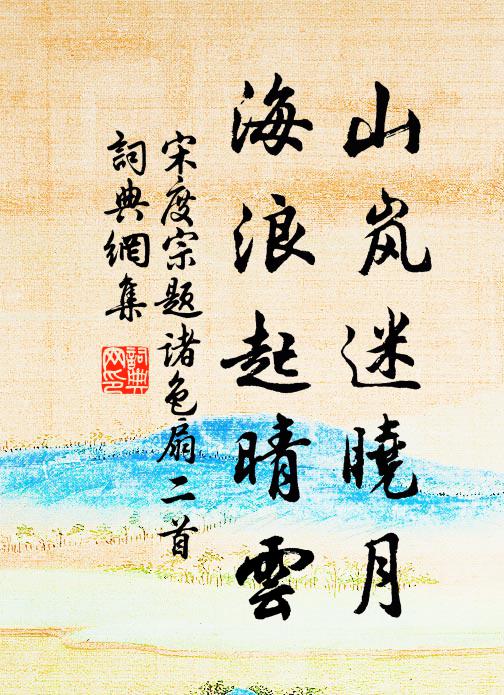 山岚迷曉月
海浪起晴雲
宋度宗题诸色扇二首
詞典網集
詞典網印